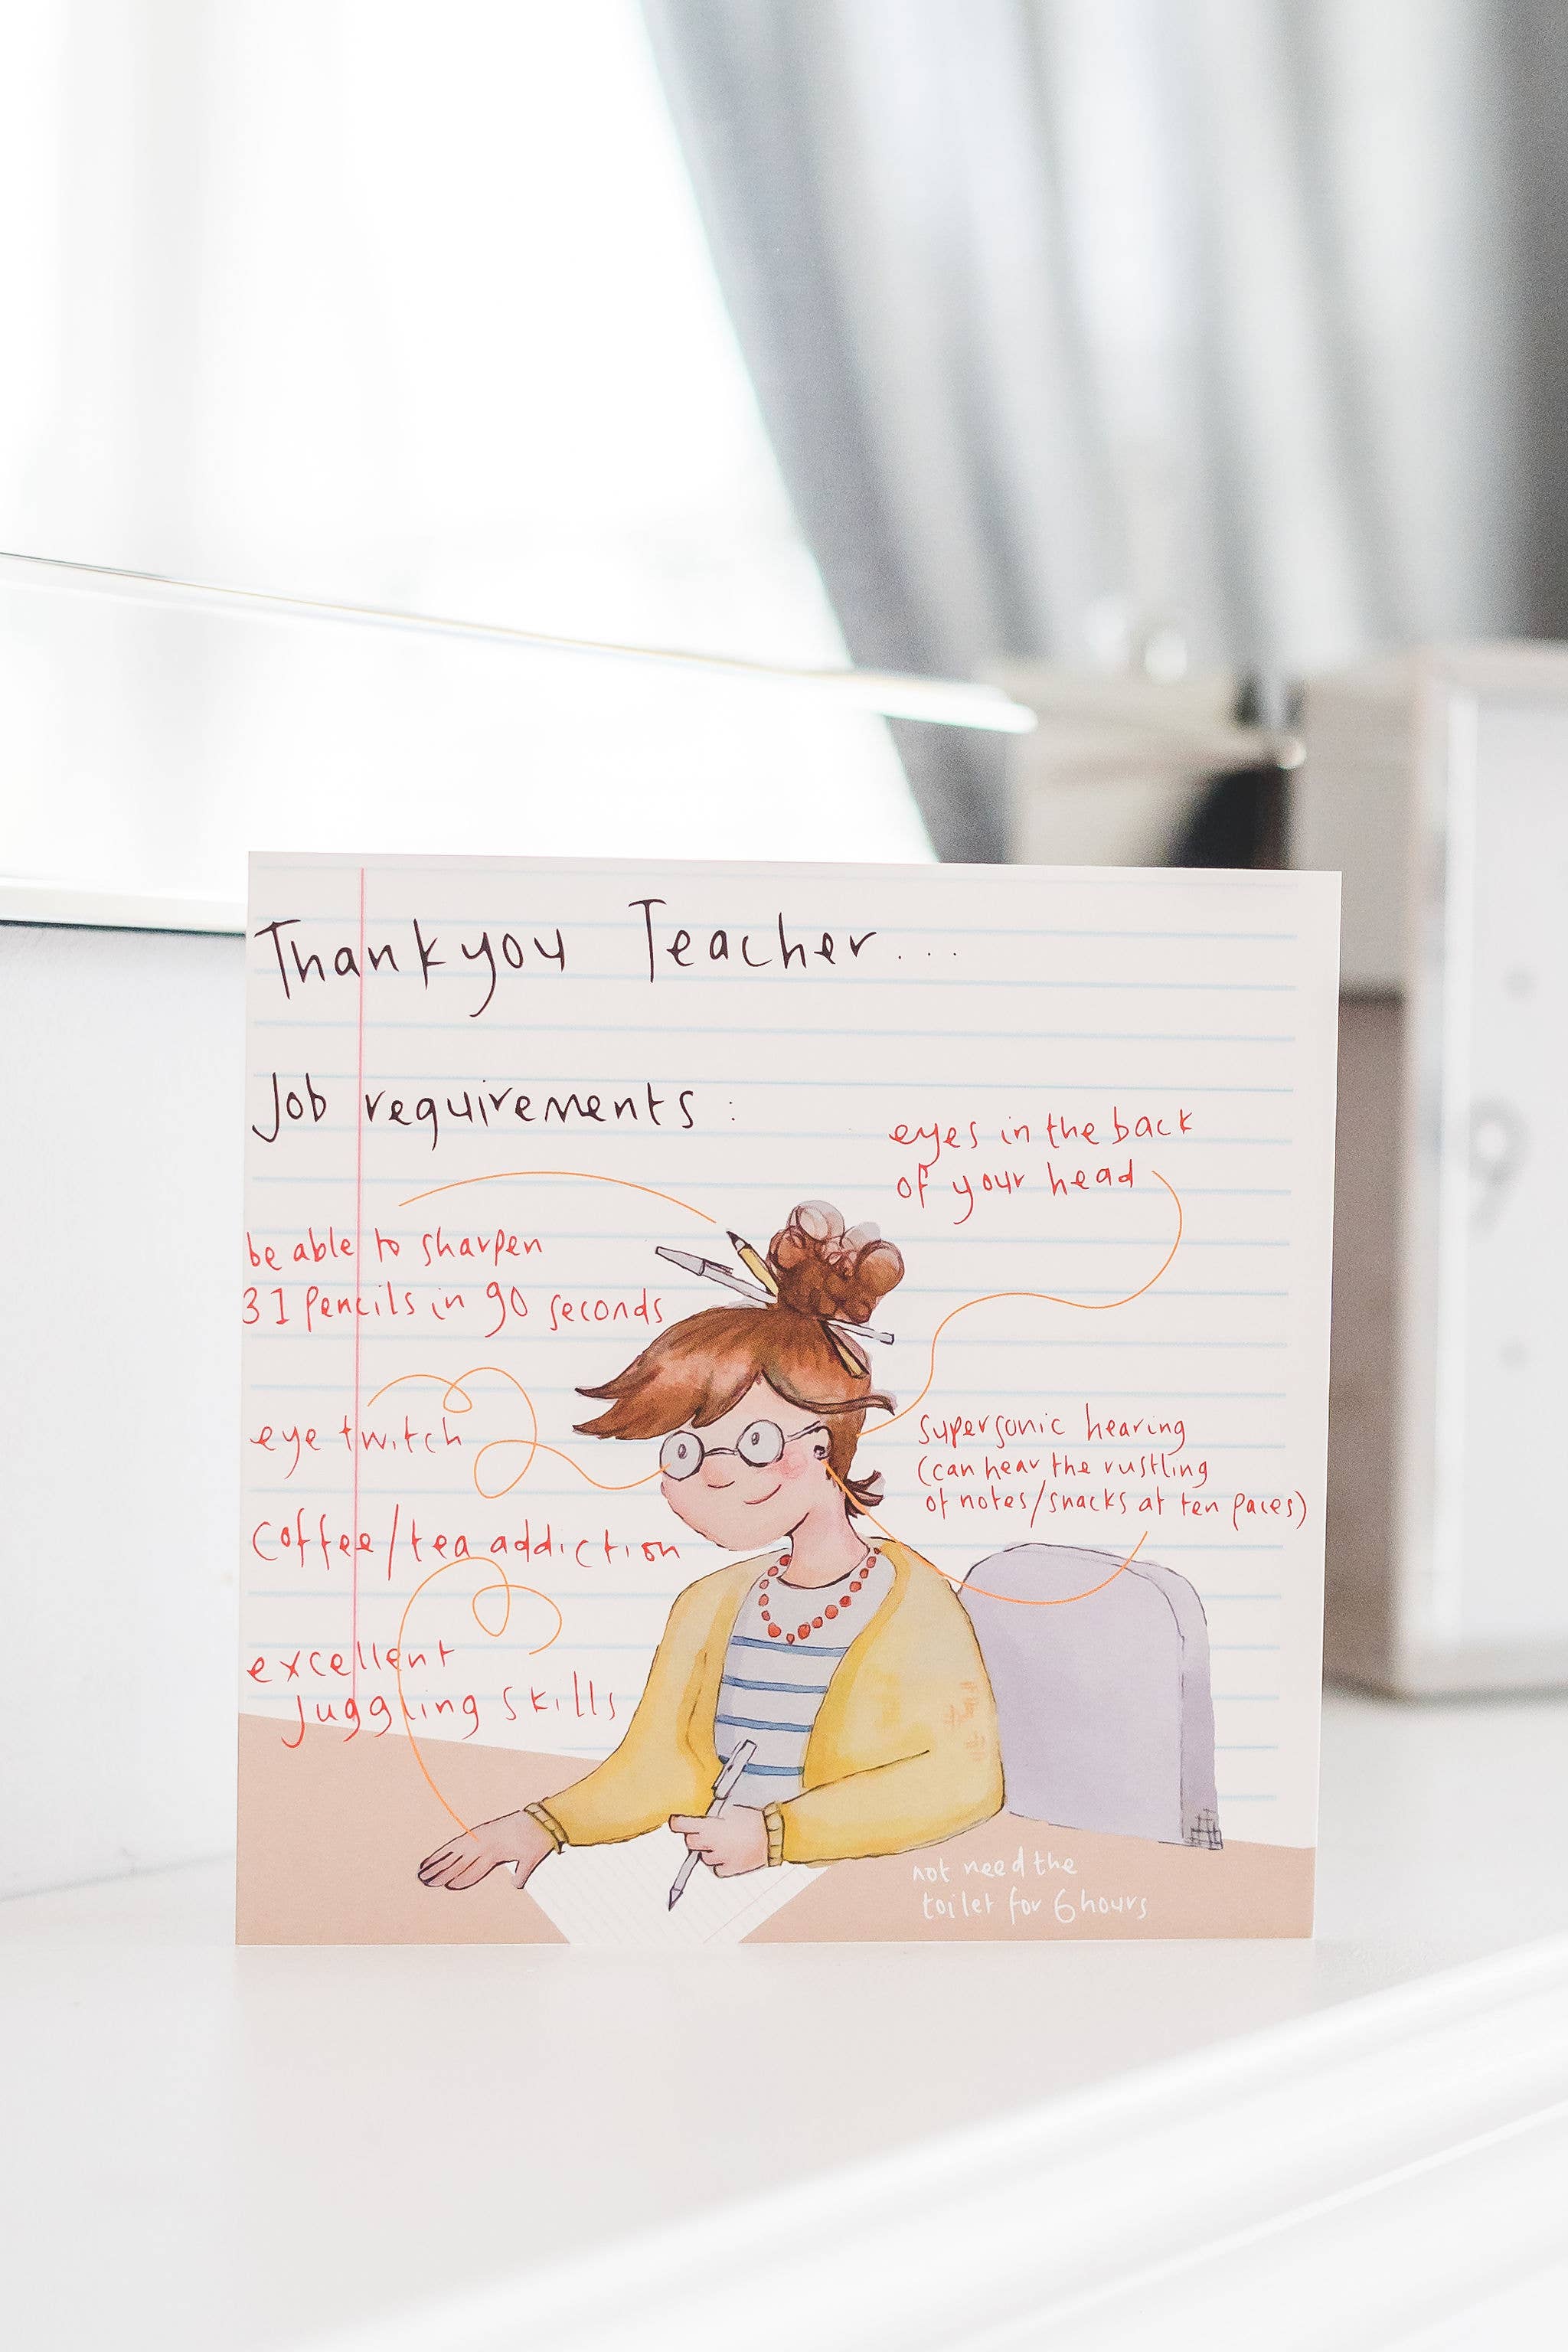 Thankyou Teacher...
Job requirements:
eyes in the back
of your head
be able to sharpen
31 pencils in 90 seconds
eye twitch
supersonic hearing
(can hear the rustling
of notes/snacks at ten paces)
coffee/tea addiction
excellent
juggling skills
not need the
toilet for 6 hours
9